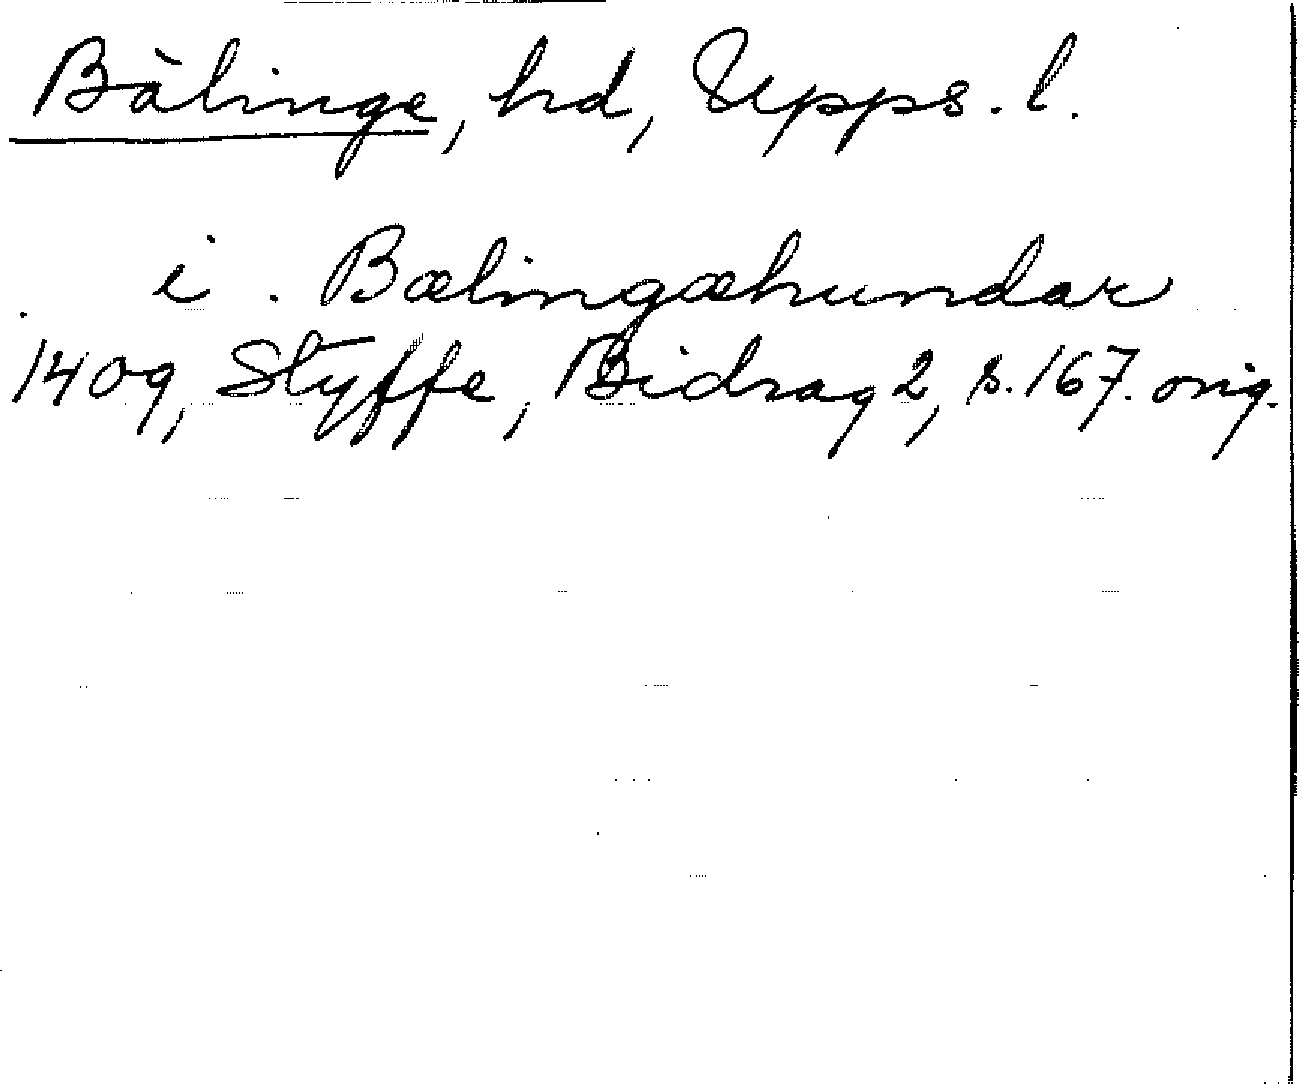 Bälinge, hd, Upps. l.
i . Bælingæhundar
1409, Styffe, Bidrag 2, s. 167. orig.